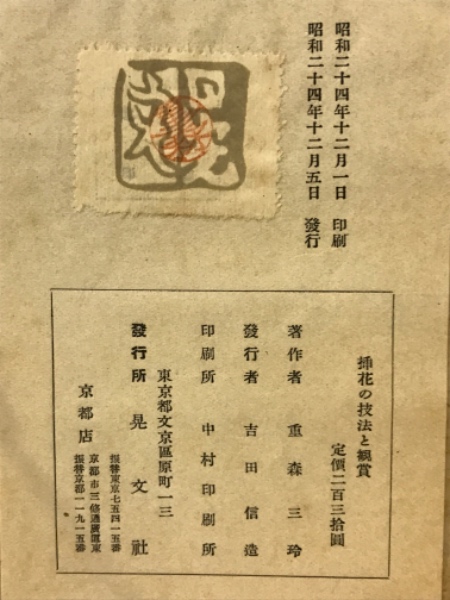 昭和二十四年十二月一日 印刷
昭和二十四年十二月五日 發行
挿花の技法と観賞
定價二百三拾圓
著作者 重森三玲
發行者 吉田信造
印刷所 中村印刷所
東京都文京區原町一三
發行所 晃文社
振替東京七五四一五番
京都店
京都市三條通廣道東
振替京都一一九一五番